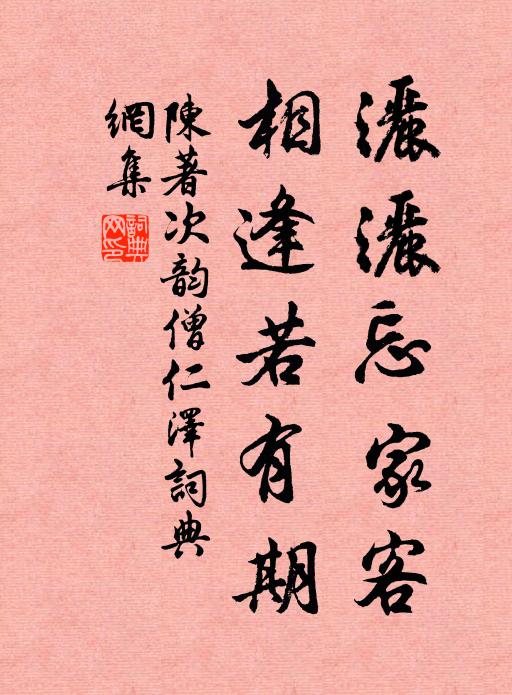 灑灑忘家客
相逢若有期
陳著次韵僧仁澤詞典
網集
詞典
网印